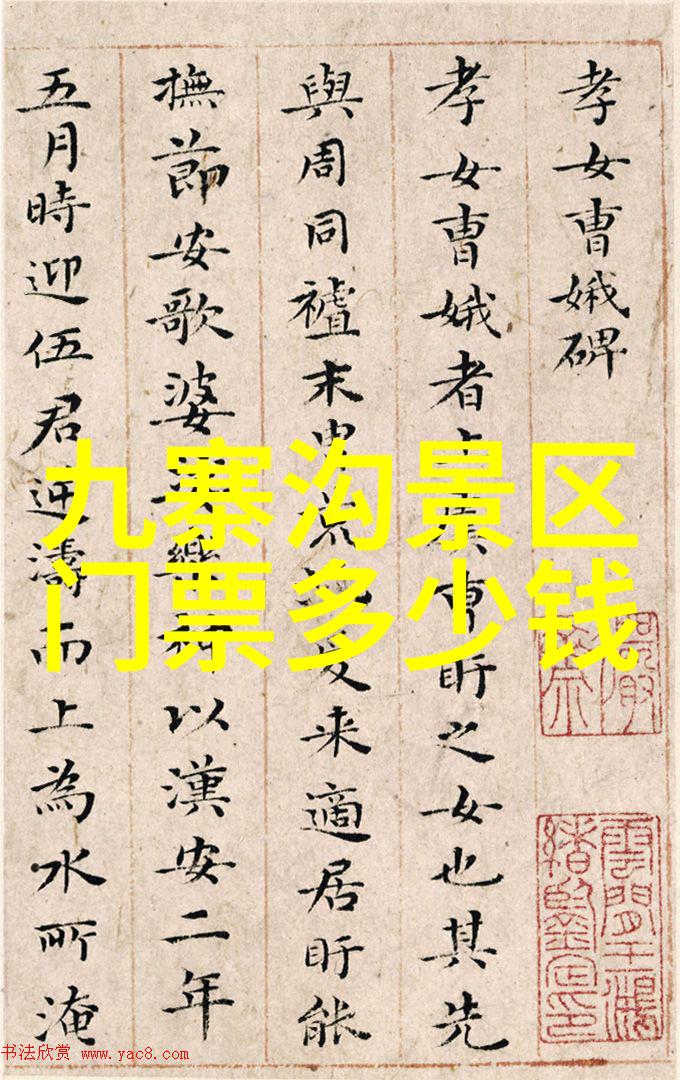 孝女曹娥碑
孝女曹娥者上虞曹盱之女也其先
與周同禮末胄荒 爰来適居盱能
撫節安歌婆娑樂神以漢安二年
五月時迎伍君逆濤而上為水所淹
九寨沟景区
门票多少钱
书法欣赏 www.yac8.com